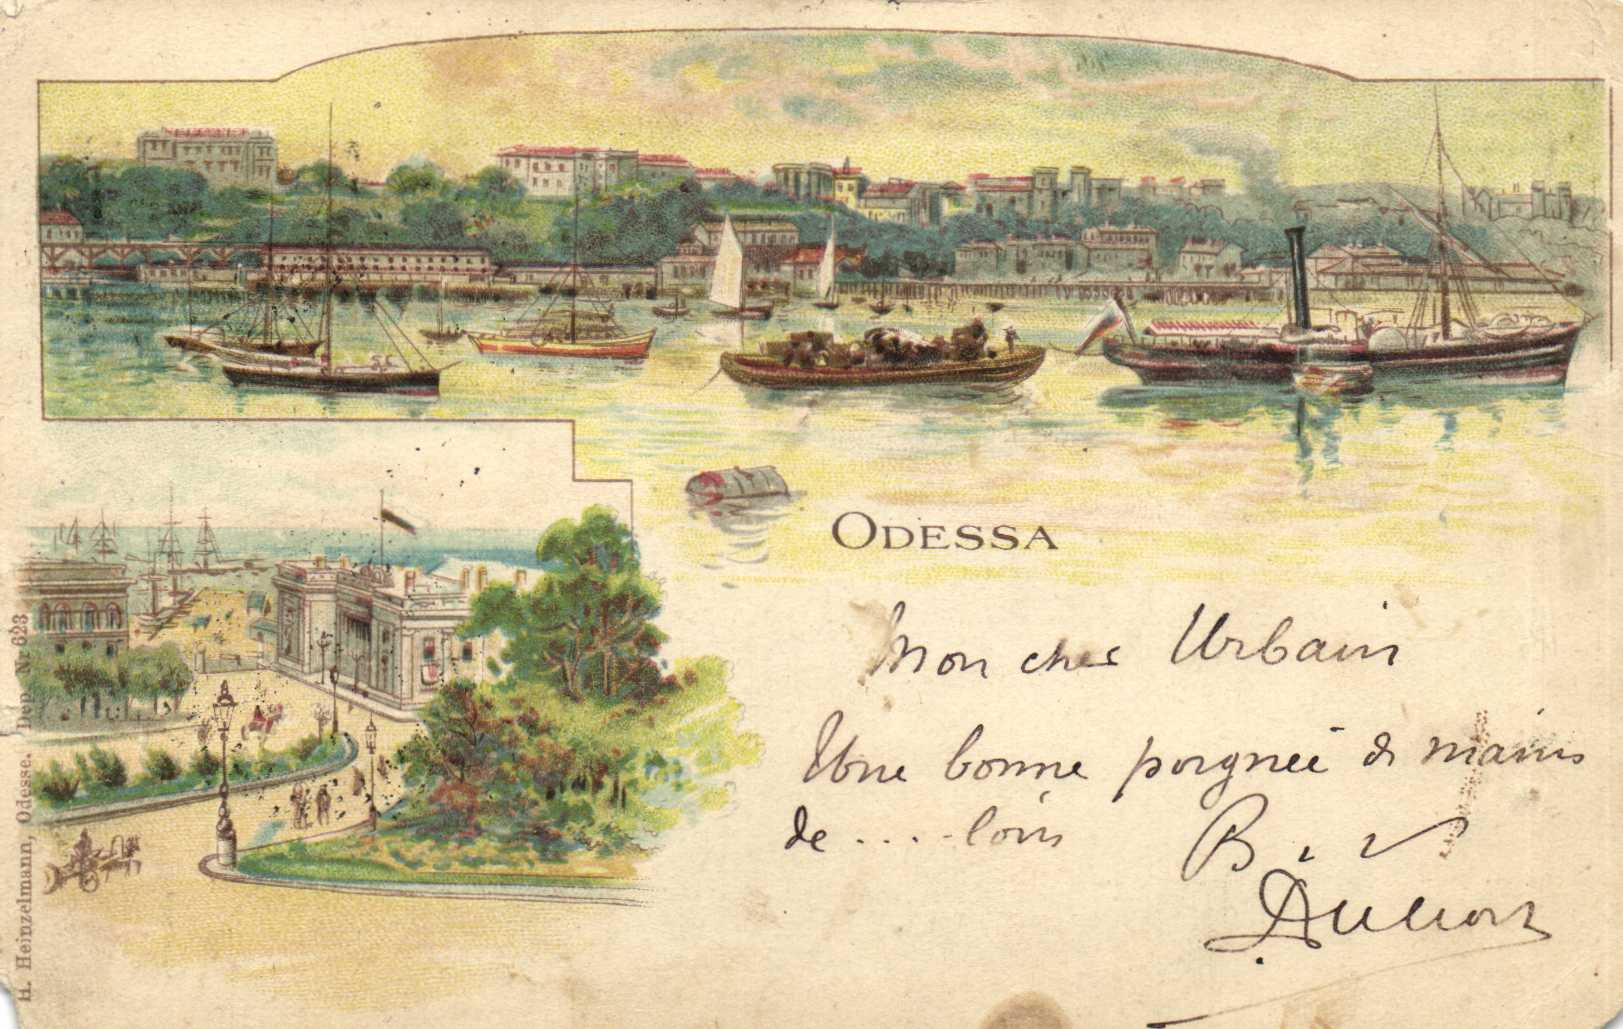 ODESSA
Mon cher Urbain
Une bonne poignée de mains
de .... loin
H. Heinzelmann, Odesse. Dep. N. 623